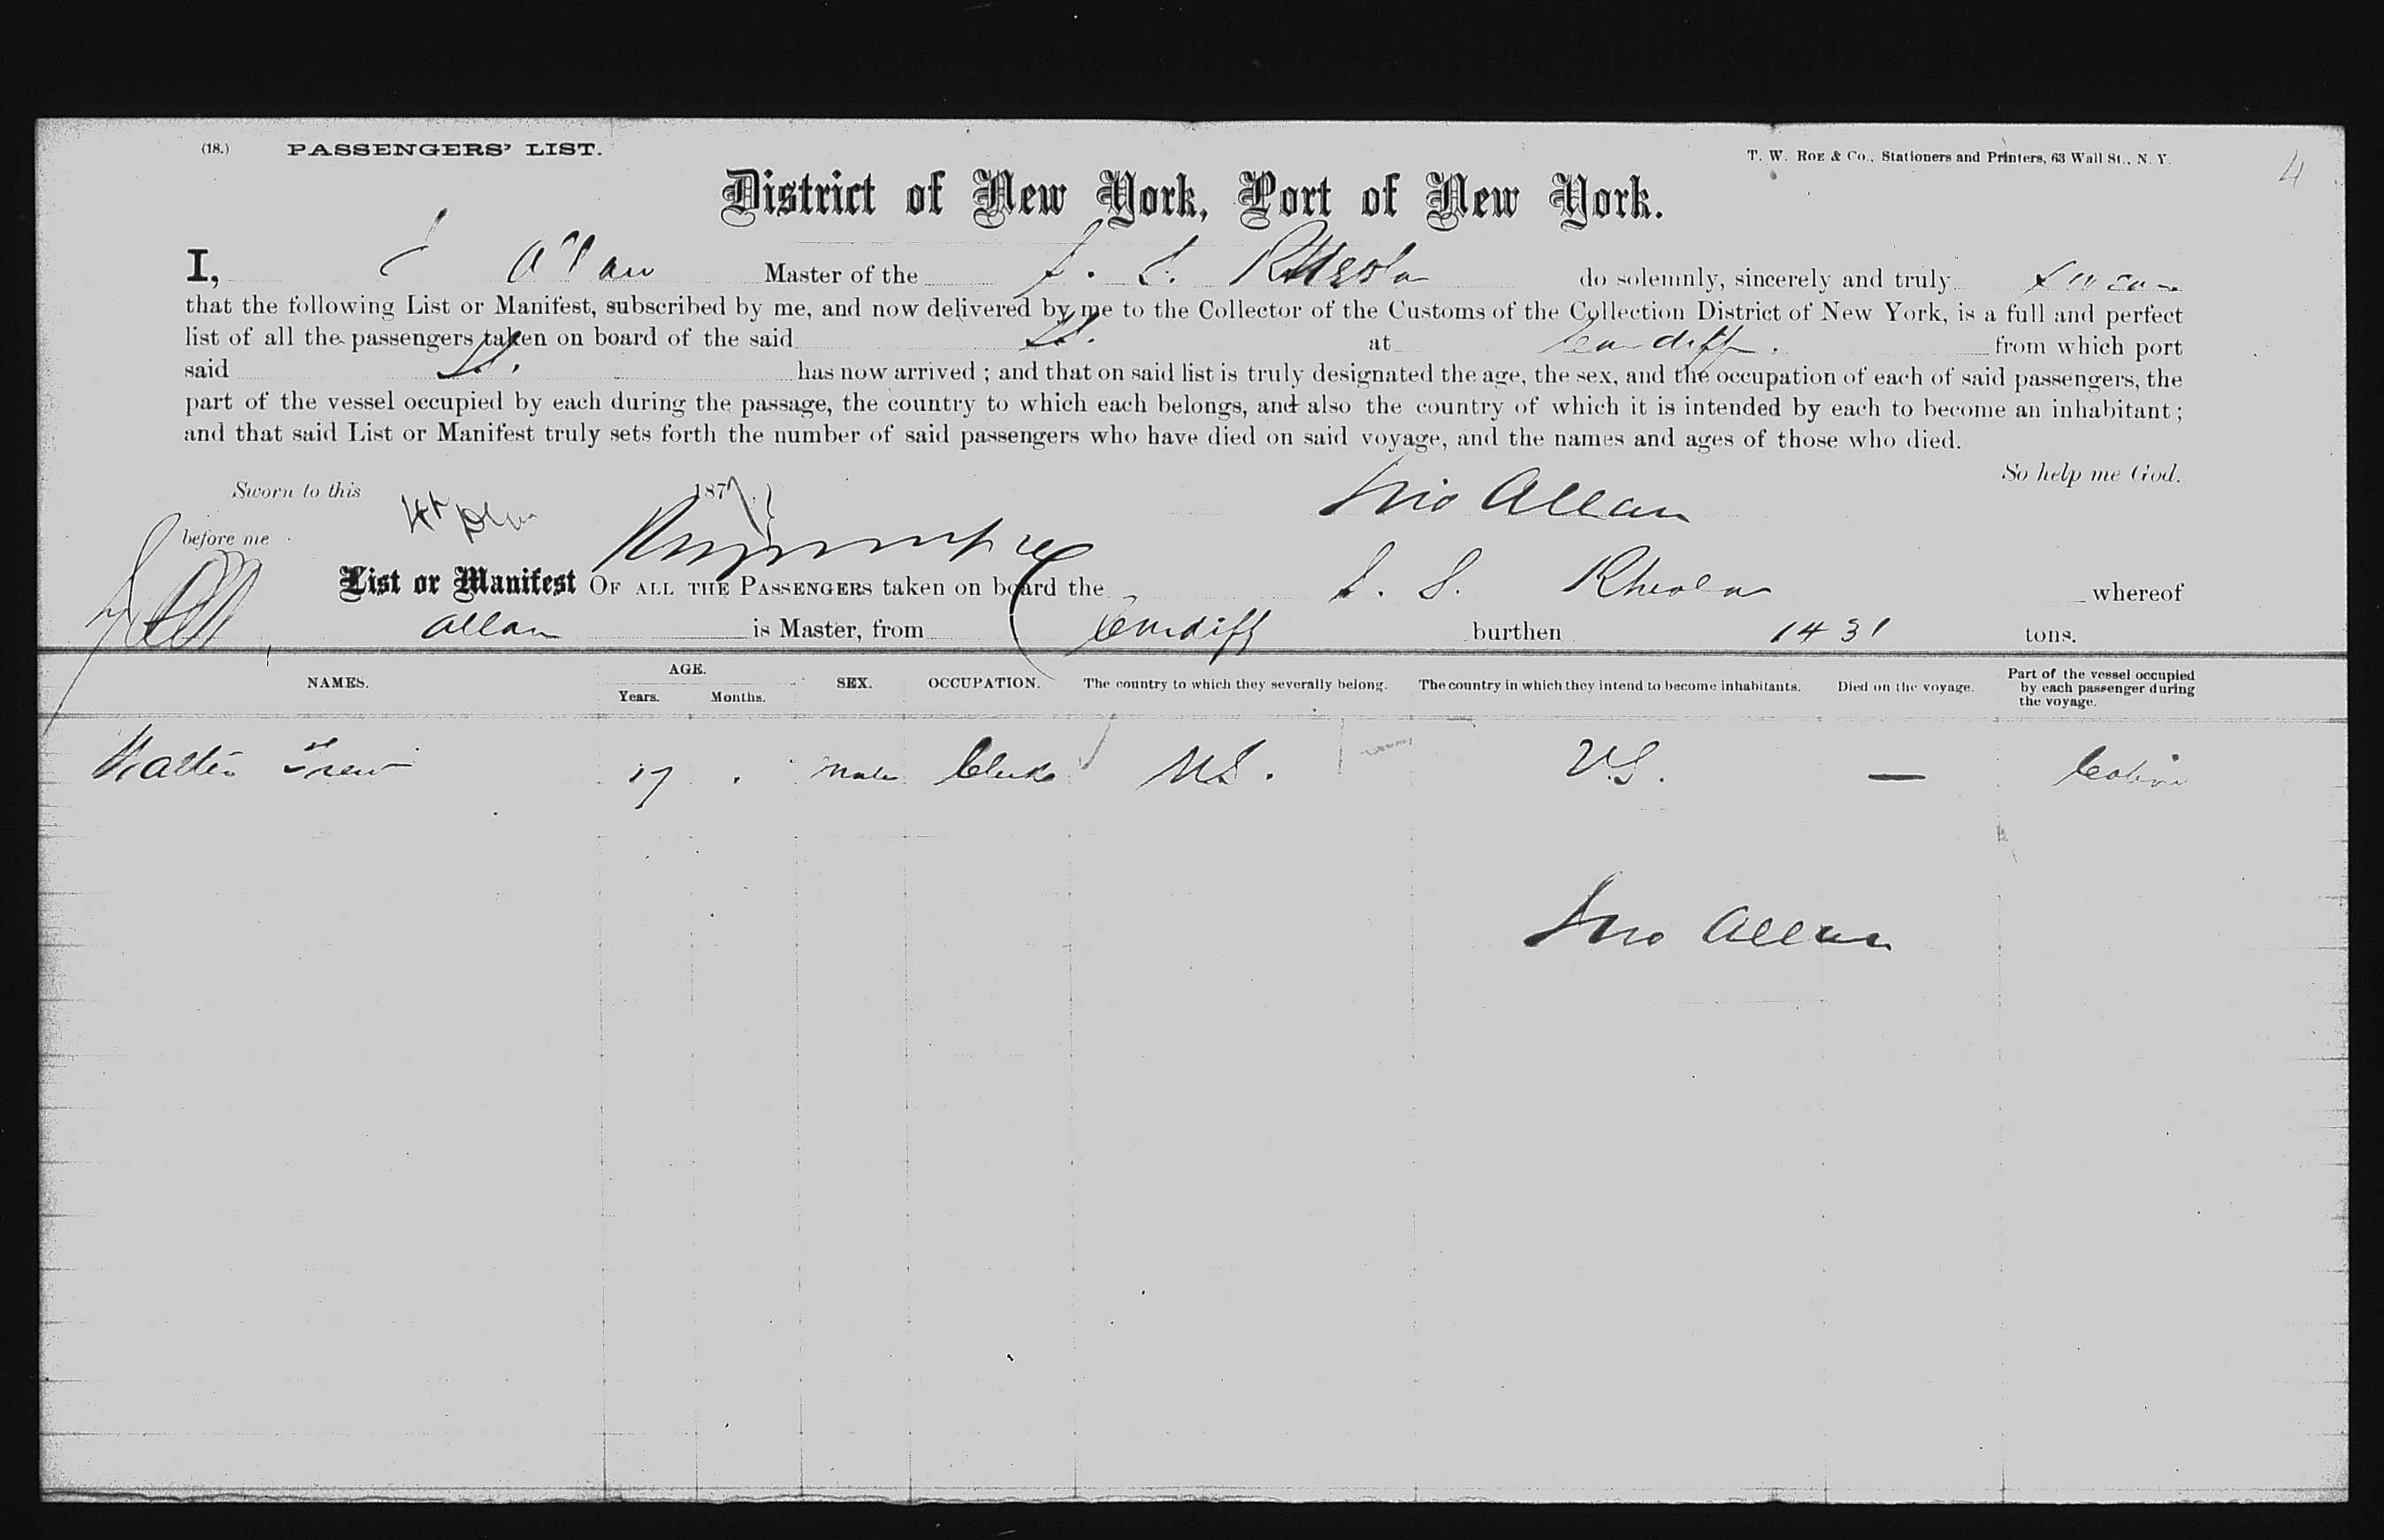 (18.) PASSENGERS' LIST.
T. W. ROE & Co., Stationers and Printers, 63 Wall St., N. Y.
4
District of New York, Port of New York.
I, Allan Master of the S. S. Rheola do solemnly, sincerely and truly swear
that the following List or Manifest, subscribed by me, and now delivered by me to the Collector of the Customs of the Collection District of New York, is a full and perfect
list of all the passengers taken on board of the said SS. at Cardiff. from which port
said SS. has now arrived ; and that on said list is truly designated the age, the sex, and the occupation of each of said passengers, the
part of the vessel occupied by each during the passage, the country to which each belongs, and also the country of which it is intended by each to become an inhabitant ;
and that said List or Manifest truly sets forth the number of said passengers who have died on said voyage, and the names and ages of those who died.
So help me God.
Sworn to this 4th 1877
Jno Allan
before me
List or Manifest OF ALL THE PASSENGERS taken on board the S. S. Rheola whereof
Allan is Master, from Cardiff burthen 1431 tons.
NAMES. AGE. SEX. OCCUPATION. The country to which they severally belong. The country in which they intend to become inhabitants. Died on the voyage. Part of the vessel occupied by each passenger during the voyage.
Years. Months.
Walter Trew 17 . Male Clerk U.S. U.S. — Cabin
Jno Allan